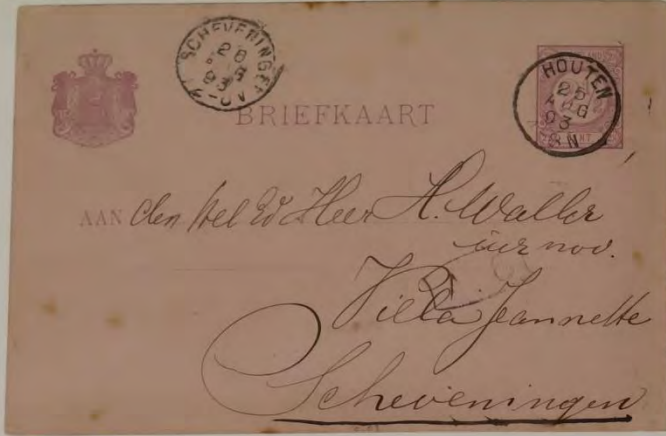 SCHEVENINGEN
26
AUG
93
HOUTEN
25
AUG
93
8N
BRIEFKAART
AAN den Wel Ed Heer A. Waller
iur nov.
Villa Jeannette
Scheveningen